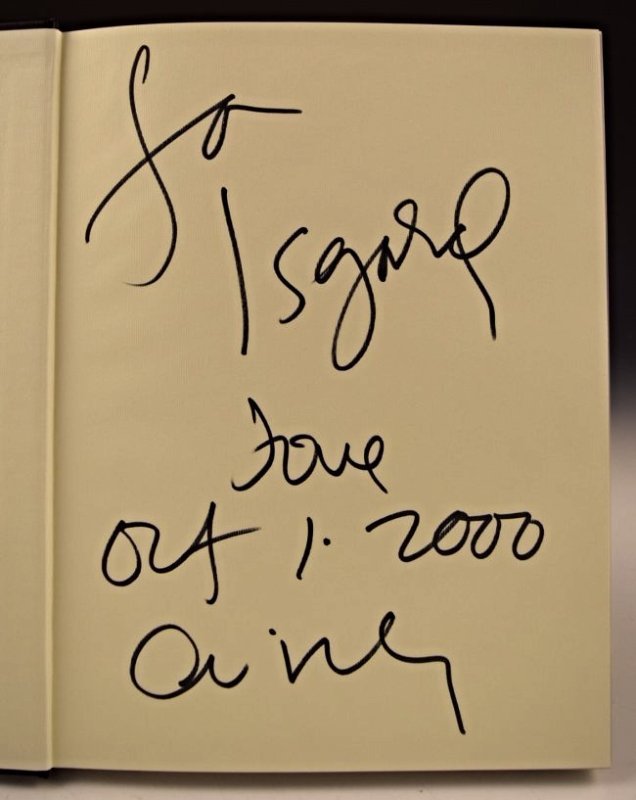 To
Isgard
Love
Oct 1. 2000